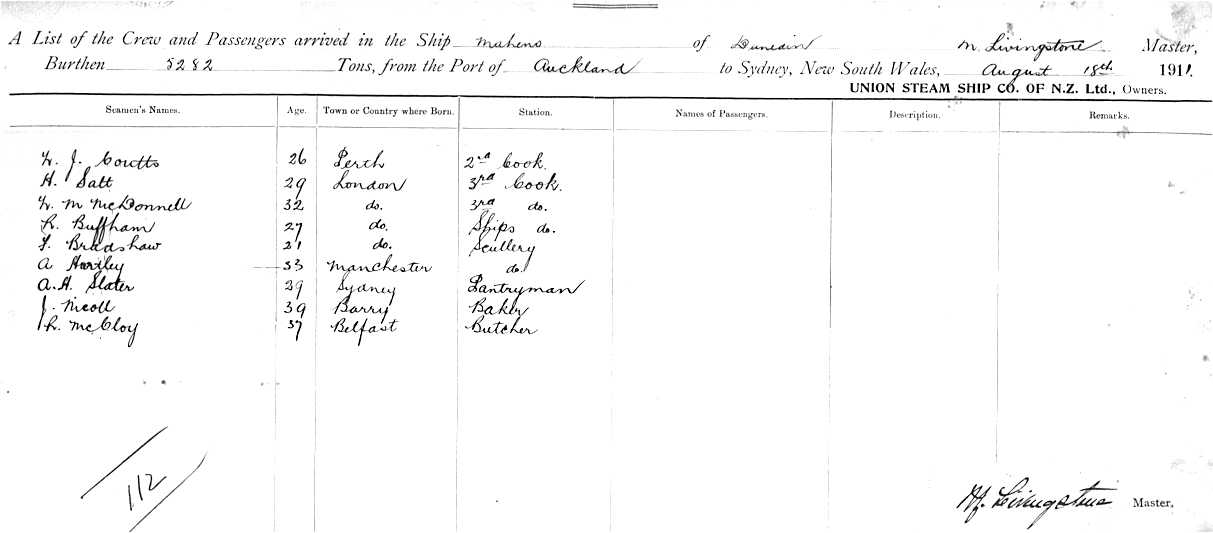 A List of the Crew and Passengers arrived in the Ship Maheno of Dunedin M. Livingstone Master,
Burthen 5282 Tons, from the Port of Auckland to Sydney, New South Wales, August 18th 1911.
UNION STEAM SHIP CO. OF N.Z. Ltd., Owners.
Seamen's Names. Age. Town or Country where Born. Station. Names of Passengers. Description. Remarks.
J. Coutts 26 Perth 2nd Cook.
H. Salt 29 London 3rd Cook.
M McDonnell 32 do. 3rd do.
R. Buffham 27 do. Ships do.
F. Bradshaw 21 do. Scullery
A Hartley 33 Manchester do.
A. H. Slater 29 Sydney Pantryman
J. Nicoll 39 Barry Baker
R. McCloy 37 Belfast Butcher
112
Livingstone Master.